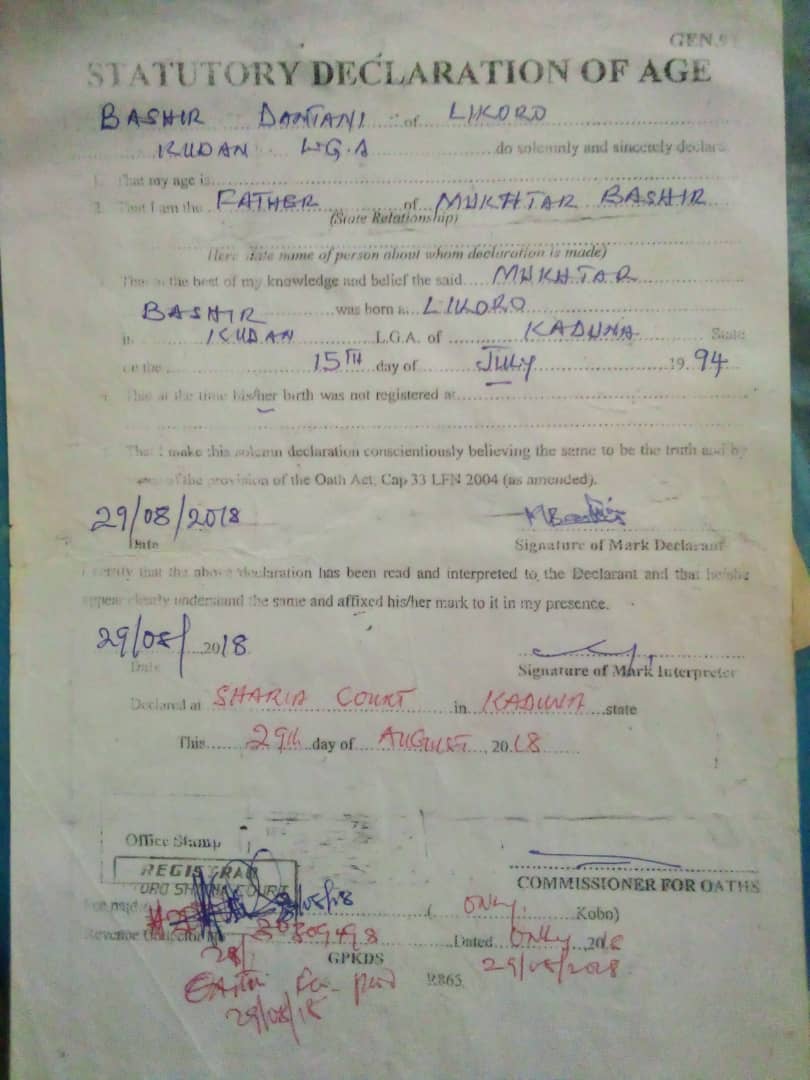 GEN.9
STATUTORY DECLARATION OF AGE
BASHIR DANTANI of LIKORO
KUDAN L.G.A do solemnly and sincerely declare
1. That my age is
2. That I am the FATHER of MUKHTAR BASHIR
(State Relationship)
Here state name of person about whom declaration is made)
That to the best of my knowledge and belief the said MUKHTAR
BASHIR was born at LIKORO
in KUDAN L.G.A. of KADUNA State
on the 15TH day of JULY 19 94
That at the time his/her birth was not registered at
That I make this solemn declaration conscientiously believing the same to be the truth and by
of the provision of the Oath Act, Cap 33 LFN 2004 (as amended).
29/08/2018
Date Signature of Mark Declarant
I certify that the above declaration has been read and interpreted to the Declarant and that he/she
appear clearly understand the same and affixed his/her mark to it in my presence.
29/08/ 2018
Date Signature of Mark Interpreter
Declared at SHARIA COURT in KADUNA state
This 29th day of AUGUST, 2018
Office Stamp
REGISTRAR
COURT
COMMISSIONER FOR OATHS
Fee paid /08/18 ( ONLY. Kobo)
Revenue Collector Dated ONLY 2018
GPKDS 29/08/2018
paid R865
29/08/18